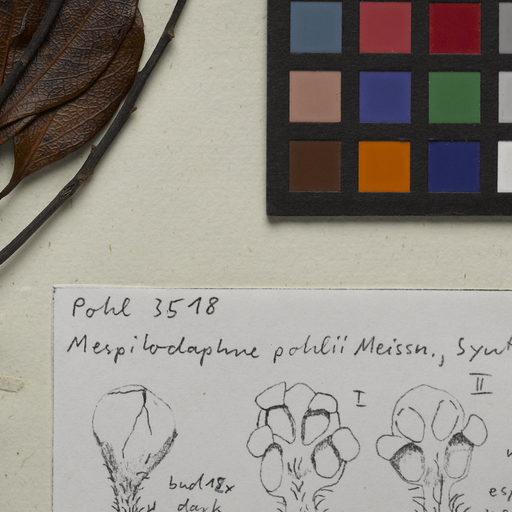 Pohl 3518
Mespilodaphne pohlii Meissn., Synt
I
II
bud 18x
dark